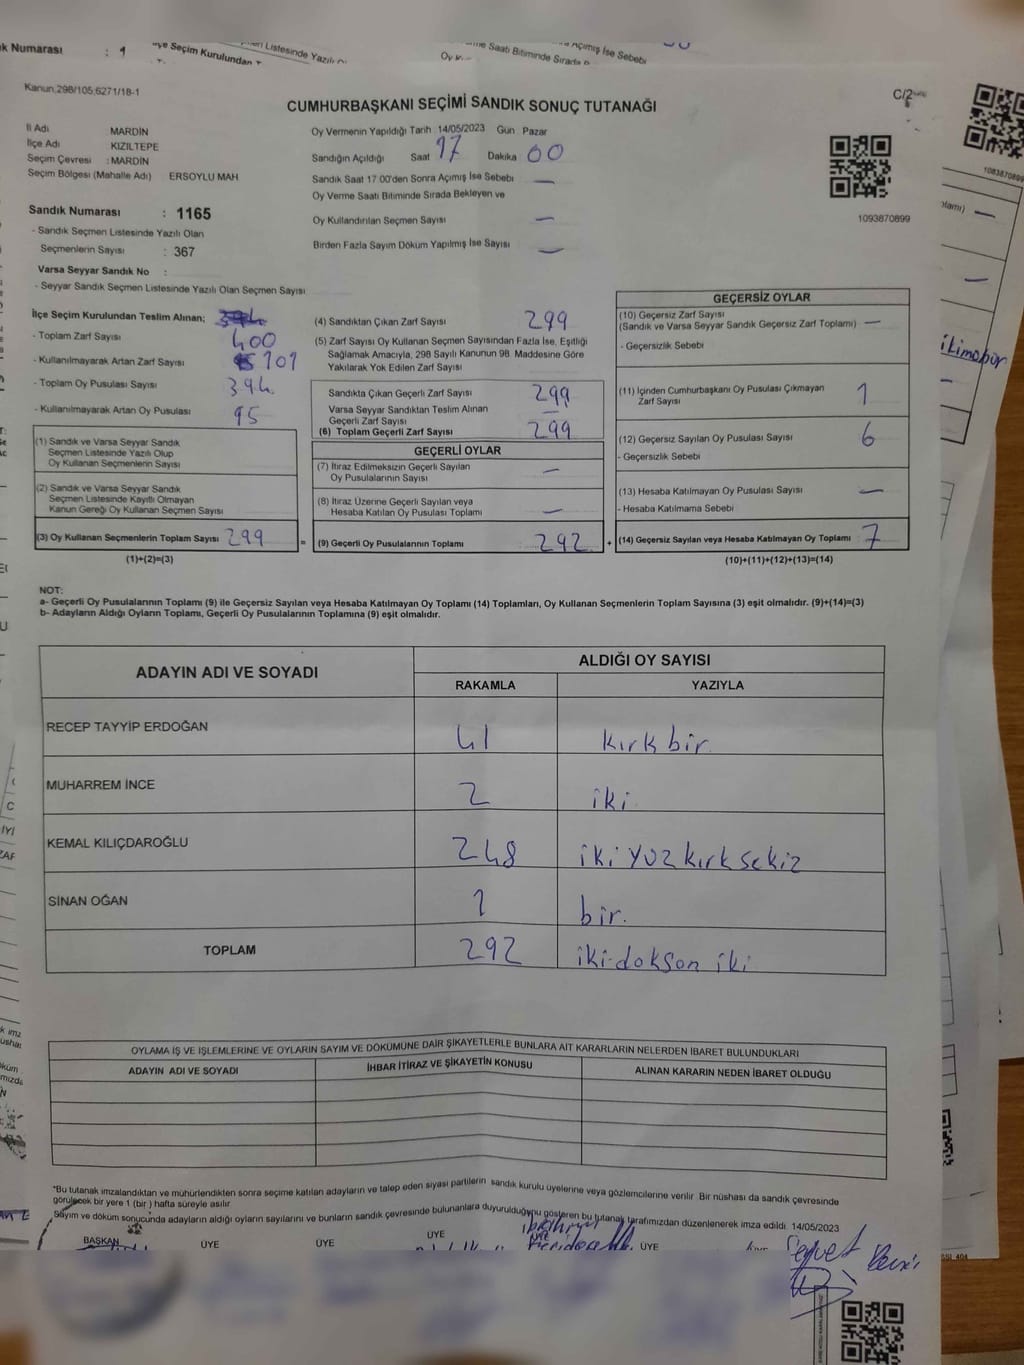 Kanun,298/105,6271/18-1
C/2
CUMHURBAŞKANI SEÇİMİ SANDIK SONUÇ TUTANAĞI
İl Adı MARDİN
İlçe Adı KIZILTEPE
Seçim Çevresi : MARDİN
Seçim Bölgesi (Mahalle Adı) ERSOYLU MAH
Sandık Numarası : 1165
- Sandık Seçmen Listesinde Yazılı Olan
Seçmenlerin Sayısı : 367
Varsa Seyyar Sandık No :
- Seyyar Sandık Seçmen Listesinde Yazılı Olan Seçmen Sayısı
Oy Vermenin Yapıldığı Tarih 14/05/2023 Gün Pazar
Sandığın Açıldığı Saat 17 Dakika 00
Sandık Saat 17 00'den Sonra Açımış İse Sebebi —
Oy Verme Saati Bitiminde Sırada Bekleyen ve
Oy Kullandırılan Seçmen Sayısı —
Birden Fazla Sayım Döküm Yapılmış İse Sayısı —
1093870899
İlçe Seçim Kurulundan Teslim Alınan;
- Toplam Zarf Sayısı 400
- Kullanılmayarak Artan Zarf Sayısı 101
- Toplam Oy Pusulası Sayısı 394
- Kullanılmayarak Artan Oy Pusulası 95
(1) Sandık ve Varsa Seyyar Sandık
Seçmen Listesinde Yazılı Olup
Oy Kullanan Seçmenlerin Sayısı
(2) Sandık ve Varsa Seyyar Sandık
Seçmen Listesinde Kayıtlı Olmayan
Kanun Gereği Oy Kullanan Seçmen Sayısı
(3) Oy Kullanan Seçmenlerin Toplam Sayısı 299
(1)+(2)=(3)
(4) Sandıktan Çıkan Zarf Sayısı 299
(5) Zarf Sayısı Oy Kullanan Seçmen Sayısından Fazla İse, Eşitliği
Sağlamak Amacıyla, 298 Sayılı Kanunun 98 Maddesine Göre
Yakılarak Yok Edilen Zarf Sayısı
Sandıkta Çıkan Geçerli Zarf Sayısı 299
Varsa Seyyar Sandıktan Teslim Alınan
Geçerli Zarf Sayısı —
(6) Toplam Geçerli Zarf Sayısı 299
GEÇERLİ OYLAR
(7) İtiraz Edilmeksizin Geçerli Sayılan
Oy Pusulalarının Sayısı —
(8) İtiraz Üzerine Geçerli Sayılan veya
Hesaba Katılan Oy Pusulası Toplamı —
= (9) Geçerli Oy Pusulalarının Toplamı 292 +
GEÇERSİZ OYLAR
(10) Geçersiz Zarf Sayısı
(Sandık ve Varsa Seyyar Sandık Geçersiz Zarf Toplamı) —
- Geçersizlik Sebebi
(11) İçinden Cumhurbaşkanı Oy Pusulası Çıkmayan
Zarf Sayısı 1
(12) Geçersiz Sayılan Oy Pusulası Sayısı 6
- Geçersizlik Sebebi
(13) Hesaba Katılmayan Oy Pusulası Sayısı —
- Hesaba Katılmama Sebebi
(14) Geçersiz Sayılan veya Hesaba Katılmayan Oy Toplamı 7
(10)+(11)+(12)+(13)=(14)
NOT:
a- Geçerli Oy Pusulalarının Toplamı (9) ile Geçersiz Sayılan veya Hesaba Katılmayan Oy Toplamı (14) Toplamları, Oy Kullanan Seçmenlerin Toplam Sayısına (3) eşit olmalıdır. (9)+(14)=(3)
b- Adayların Aldığı Oyların Toplamı, Geçerli Oy Pusulalarının Toplamına (9) eşit olmalıdır.
ADAYIN ADI VE SOYADI ALDIĞI OY SAYISI
RAKAMLA YAZIYLA
RECEP TAYYİP ERDOĞAN 41 kırk bir
MUHARREM İNCE 2 iki
KEMAL KILIÇDAROĞLU 248 iki yüz kırk sekiz
SİNAN OĞAN 1 bir.
TOPLAM 292 iki-dokson iki
OYLAMA İŞ VE İŞLEMLERİNE VE OYLARIN SAYIM VE DÖKÜMÜNE DAİR ŞİKAYETLERLE BUNLARA AİT KARARLARIN NELERDEN İBARET BULUNDUKLARI
ADAYIN ADI VE SOYADI İHBAR İTİRAZ VE ŞİKAYETİN KONUSU ALINAN KARARIN NEDEN İBARET OLDUĞU
*Bu tutanak imzalandıktan ve mühürlendikten sonra seçime katılan adayların ve talep eden siyasi partilerin sandık kurulu üyelerine veya gözlemcilerine verilir Bir nüshası da sandık çevresinde
görülecek bir yere 1 (bir) hafta süreyle asılır
Sayım ve döküm sonucunda adayların aldığı oyların sayılarını ve bunların sandık çevresinde bulunanlara duyurulduğunu gösteren bu tutanak tarafımızdan düzenlenerek imza edildi. 14/05/2023
BAŞKAN ÜYE ÜYE ÜYE ÜYE